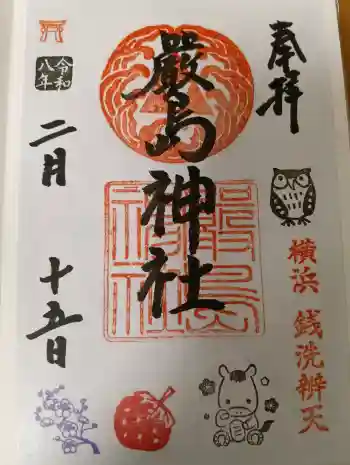 奉拝
横浜 銭洗辨天
嚴島神社
嚴島神社
令和八年
二月 十五日